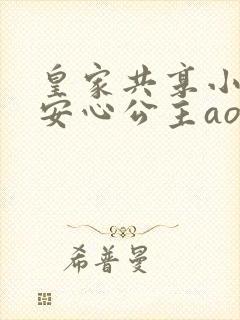 皇家共享小
安心公主ao
希普曼